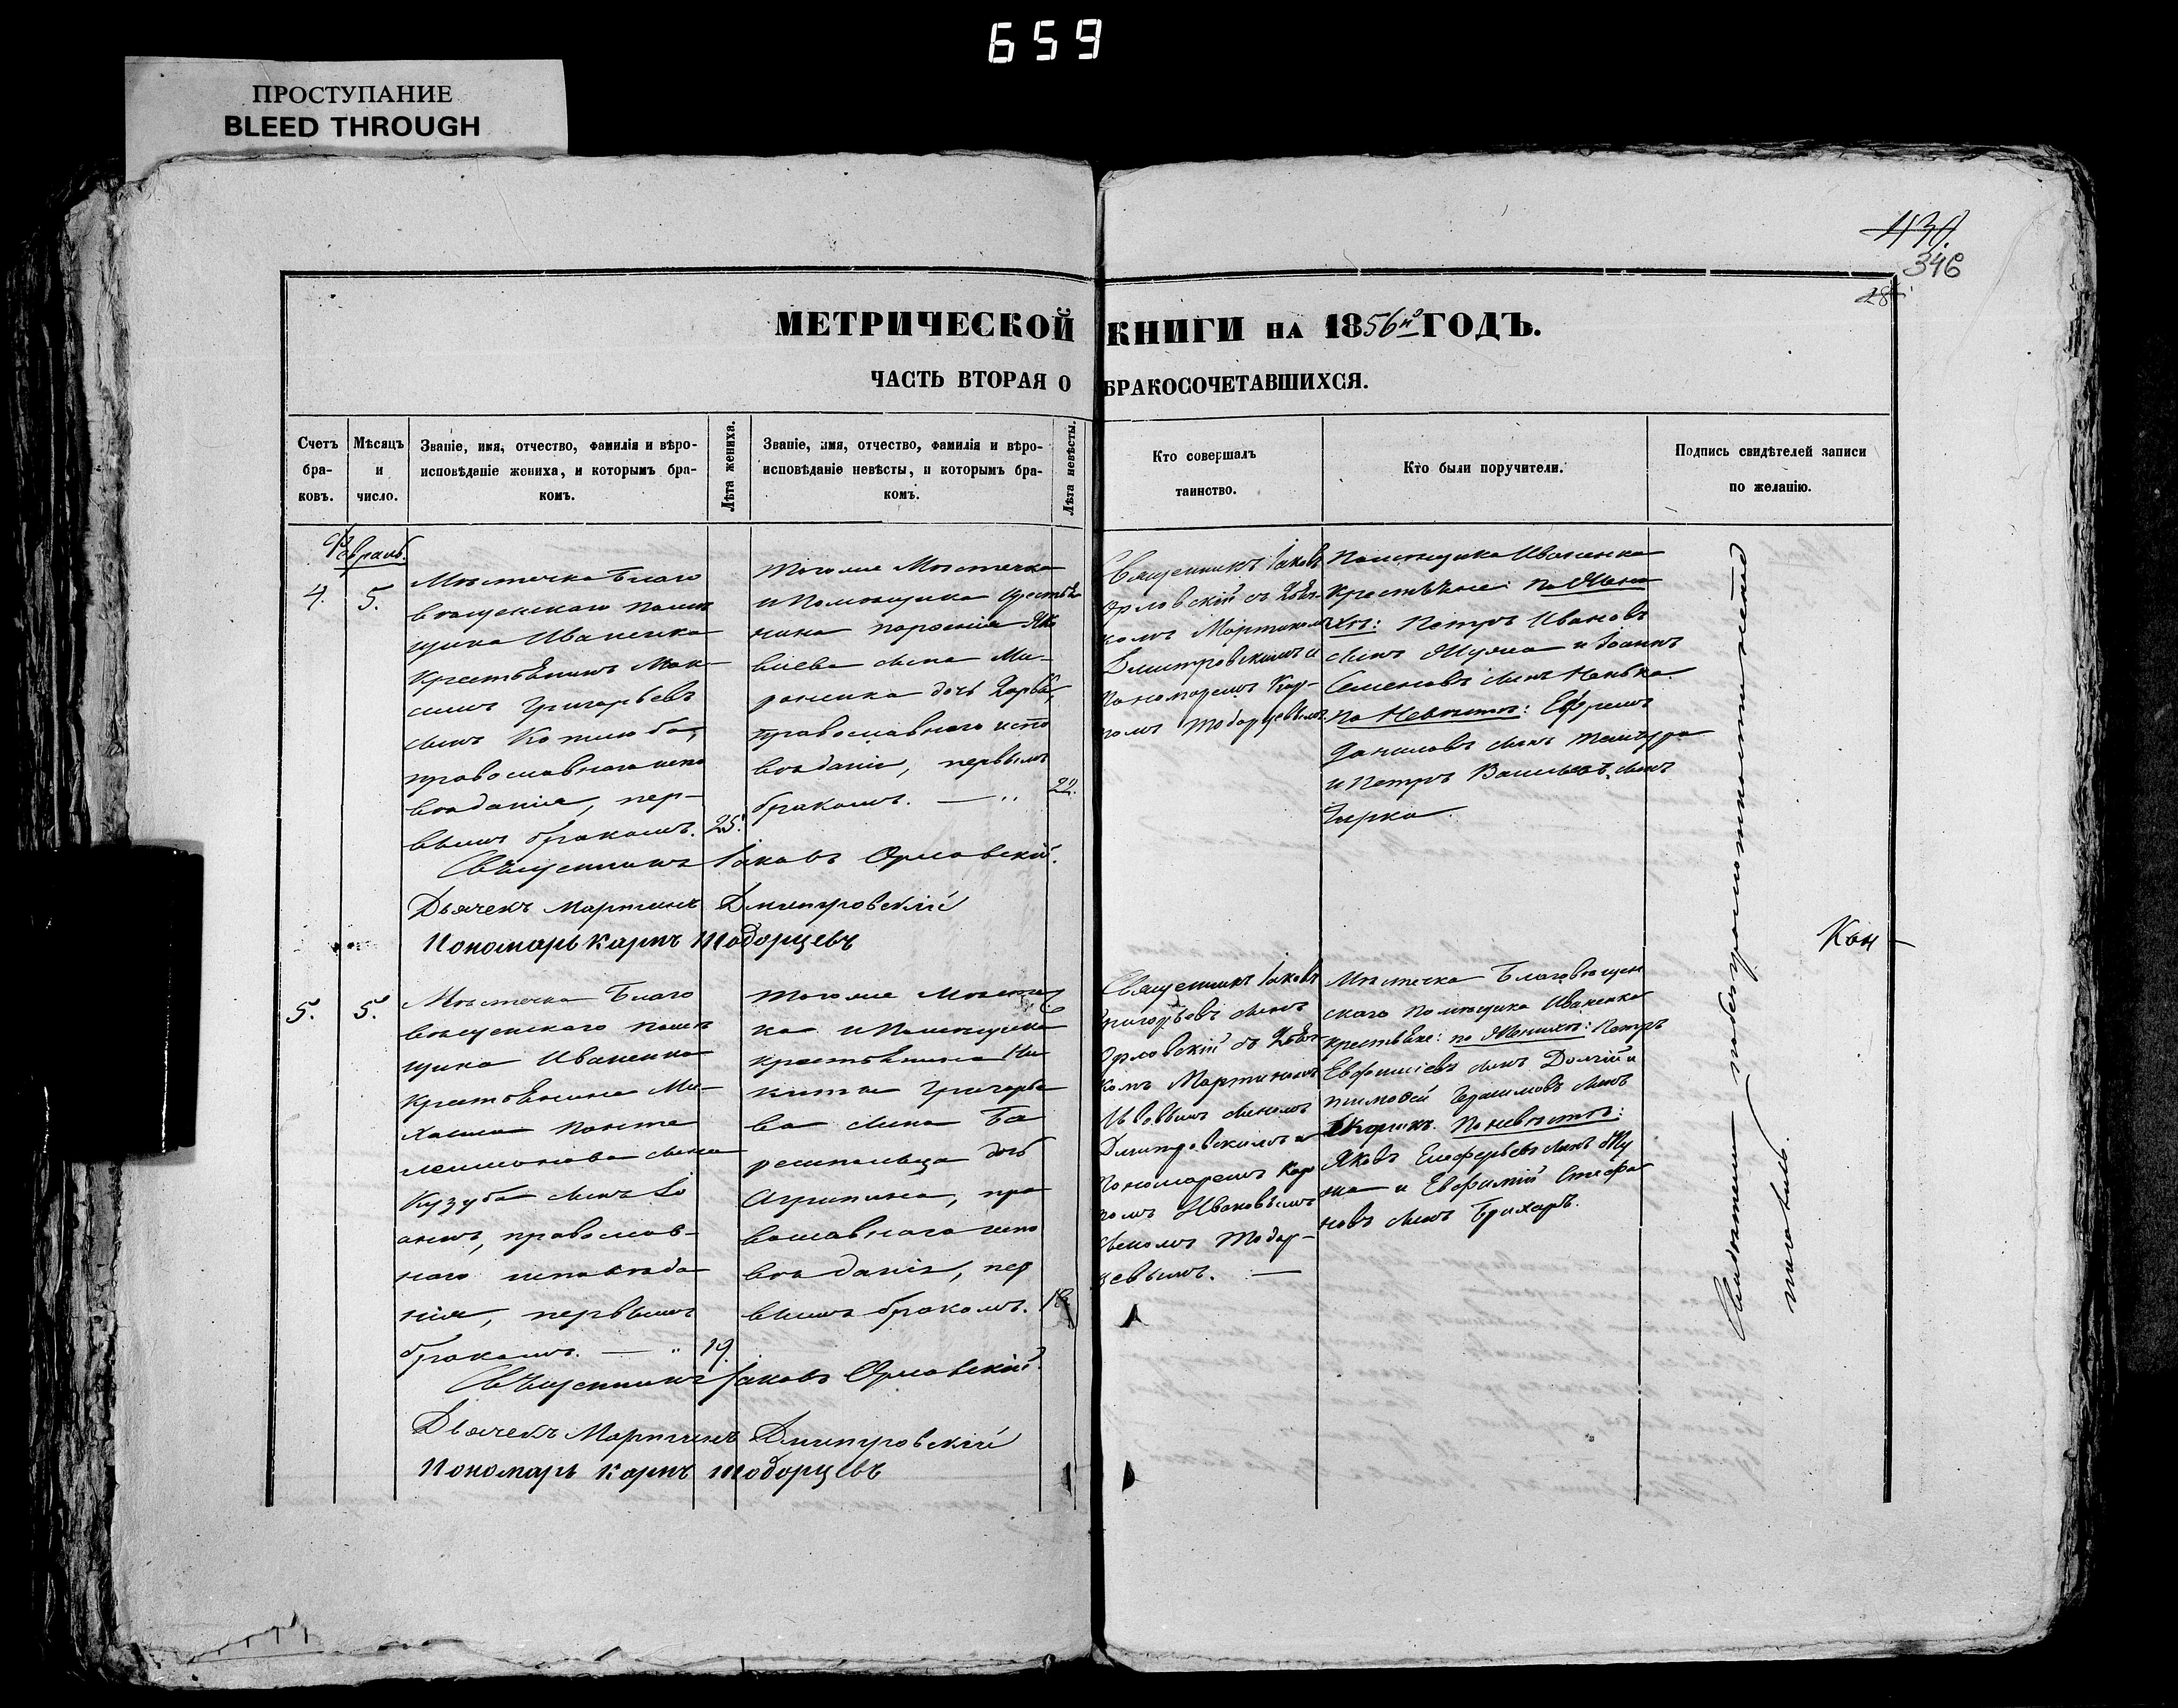 659
ПРОСТУПАНИЕ
BLEED THROUGH
430.
346
28
МЕТРИЧЕСКОЙ КНИГИ НА 1856й ГОДЪ.
ЧАСТЬ ВТОРАЯ О БРАКОСОЧЕТАВШИХСЯ.
Счетъ бра-ковъ.
Мѣсяцъ и число.
Званіе, имя, отчество, фамилія и вѣро-
исповѣданіе жениха, и которымъ бра-
комъ.
Лѣта жениха.
Званіе, имя, отчество, фамилія и вѣро-
исповѣданіе невѣсты, и которымъ бра-
комъ.
Лѣта невѣсты.
Кто совершалъ
таинство.
Кто были поручители.
Подпись свидѣтелей записи
по желанію.
Февраль.
4.
5.
Мѣстечка Благо
вѣщенскаго помѣ
щика Иваненка
крестьянинъ Мак-
симъ Григорьевъ
сынъ Котлюба,
православнаго испо
вѣданія, пер-
вымъ бракомъ.
25.
Тогоже Мѣстечка
и Помѣщика крестья
нина
сына Ми-
роненка дочь
православнаго испо
вѣданія, первымъ
бракомъ. — "
22.
Священникъ Іаковъ
Орловскій съ
комъ Мартиномъ
Дмитровскимъ и
Пономаремъ Кар-
помъ Тодорцевымъ.
Помѣщика Иваненка
крестьяне: по Жени
хѣ: Петръ Ивановъ
сынъ и Іоаннъ
Семеновъ сынъ
по Невѣстѣ: Ефремъ
Даниловъ сынъ
и Петръ Васильевъ сынъ
Чирка.
Священникъ Іаковъ Орловскій.
Дьячекъ Мартинъ Дмитровскій
Пономарь Карпъ Тодорцевъ
5.
5.
Мѣстечка Благо
вѣщенскаго помѣ
щика Иваненка
крестьянина Ми-
хаила Панте
леимонова сына
Кузуба сынъ Іо
аннъ, православ-
наго исповѣда
нія, первымъ
бракомъ. — "
19.
Тогоже Мѣстеч
ка и Помѣщика
крестьянина Ни
киты Григорье
ва сына Ба
дочь
Агрипина, пра
вославнаго испо
вѣданія, пер
вымъ бракомъ.
18
Священникъ Іаковъ
Григорьевъ сынъ
Орловскій съ
комъ Мартиномъ
сыномъ
Дмитровскимъ и
Пономаремъ Кар
помъ Ивановымъ
сыномъ Тодор-
цевымъ. —
Мѣстечка Благовѣщен
скаго Помѣщика Иваненка
крестьяне: по Женихѣ: Петръ
Евфиміевъ сынъ Долгій и
Тимофей Герасимовъ сынъ
Скорикъ. По невѣстѣ:
Яковъ Елеферьевъ сынъ
и Евфимій Стефа
новъ сынъ
Священникъ Іаковъ Орловскій.
Дьячекъ Мартинъ Дмитровскій
Пономарь Карпъ Тодорцевъ
Кон